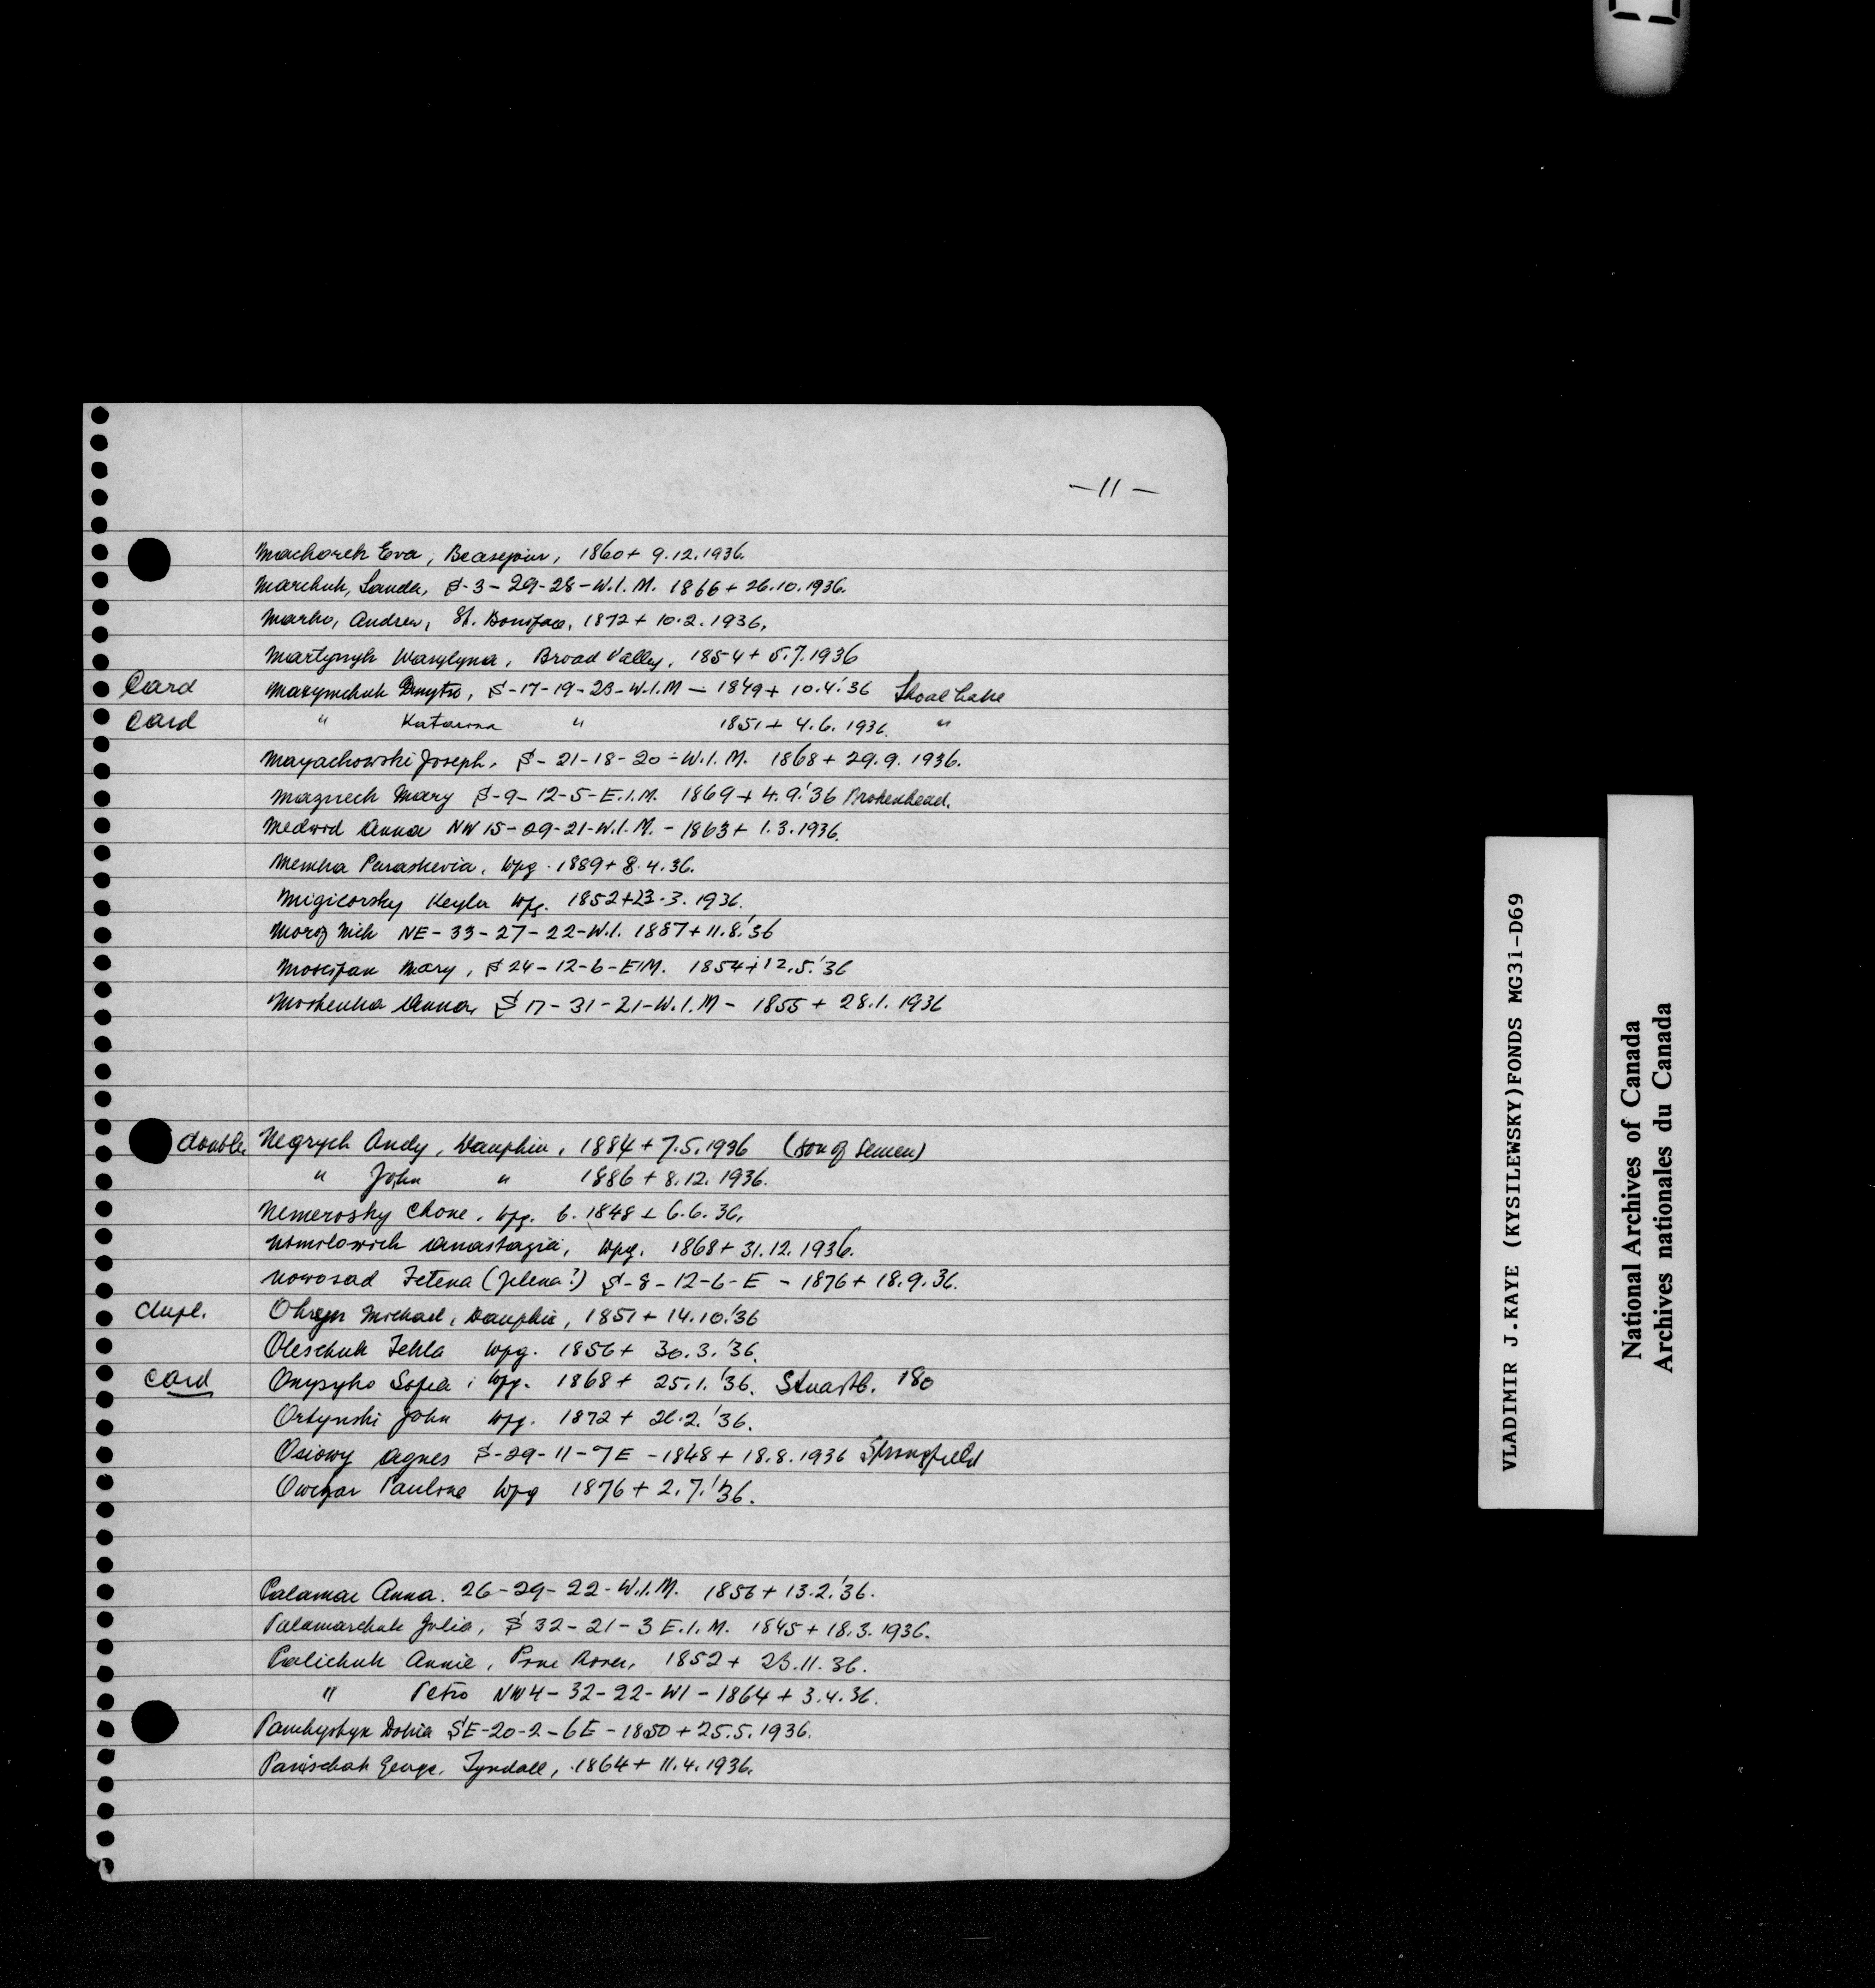 -11-
Machorek Eva, Beausejour, 1860 + 9.12.1936.
Marchuk, Sanda, S-3-29-28-W.1.M. 1866 + 26.10.1936.
Marko, Andrew, St. Boniface, 1872 + 10.2.1936,
Martynyk Wasylyna, Broad Valley, 1854 + 5.7.1936
Card Maxymchuk Dmytro, S-17-19-23-W.1.M - 1849 + 10.4.'36 Shoal Lake
Card " Katarina " 1851 + 4.6.1936. "
Mayachowski Joseph, S-21-18-20-W.1.M. 1868 + 29.9.1936.
Maznech Mary S-9-12-5-E.1.M. 1869 + 4.9.'36 Brokenhead.
Medwid Anna NW 15-29-21-W.1.M. - 1863 + 1.3.1936.
Memka Paraskevia, Wpg. 1889 + 8.4.36.
Migicorsky Keyla Wpg. 1852 + 23.3.1936.
Moroz Nick NE-33-27-22-W.1. 1887 + 11.8.'36
Mary, S 24-12-6-E1M. 1854 + 12.5.'36
Moskenka Anna, S 17-31-21-W.1.M - 1855 + 28.1.1936
double Negrych Andy, Dauphin, 1884 + 7.5.1936 (son of Semen)
" John " 1886 + 8.12.1936.
Nemerosky Chone, Wpg. b. 1848 + 6.6.36.
Anastazia, Wpg. 1868 + 31.12.1936.
Nowosad Tetena (Jelena?) S-8-12-6-E - 1876 + 18.9.36.
dupl. Ohryn Michael, Dauphin, 1851 + 14.10.'36
Oleschuk Tekla Wpg. 1856 + 30.3.'36.
card Onysyko Sofia, Wpg. 1868 + 25.1.'36. Stuartb. 180
Ortynski John Wpg. 1872 + 26.2.'36.
Osiowy Agnes S-29-11-7E - 1848 + 18.8.1936 Springfield
Owczar Pauline Wpg 1876 + 2.7.'36.
Palamar Anna. 26-29-22-W.1.M. 1856 + 13.2.'36.
Palamarchuk Julia, S 32-21-3 E.1.M. 1845 + 18.3.1936.
Palichuk Annie, Pine River, 1852 + 23.11.36.
" Petro NW4-32-22-W1 - 1864 + 3.4.36.
Dokia SE-20-2-6E - 1850 + 25.5.1936.
Parischak George, Tyndall, 1864 + 11.4.1936.
VLADIMIR J.KAYE (KYSILEWSKY)FONDS MG31-D69
National Archives of Canada
Archives nationales du Canada